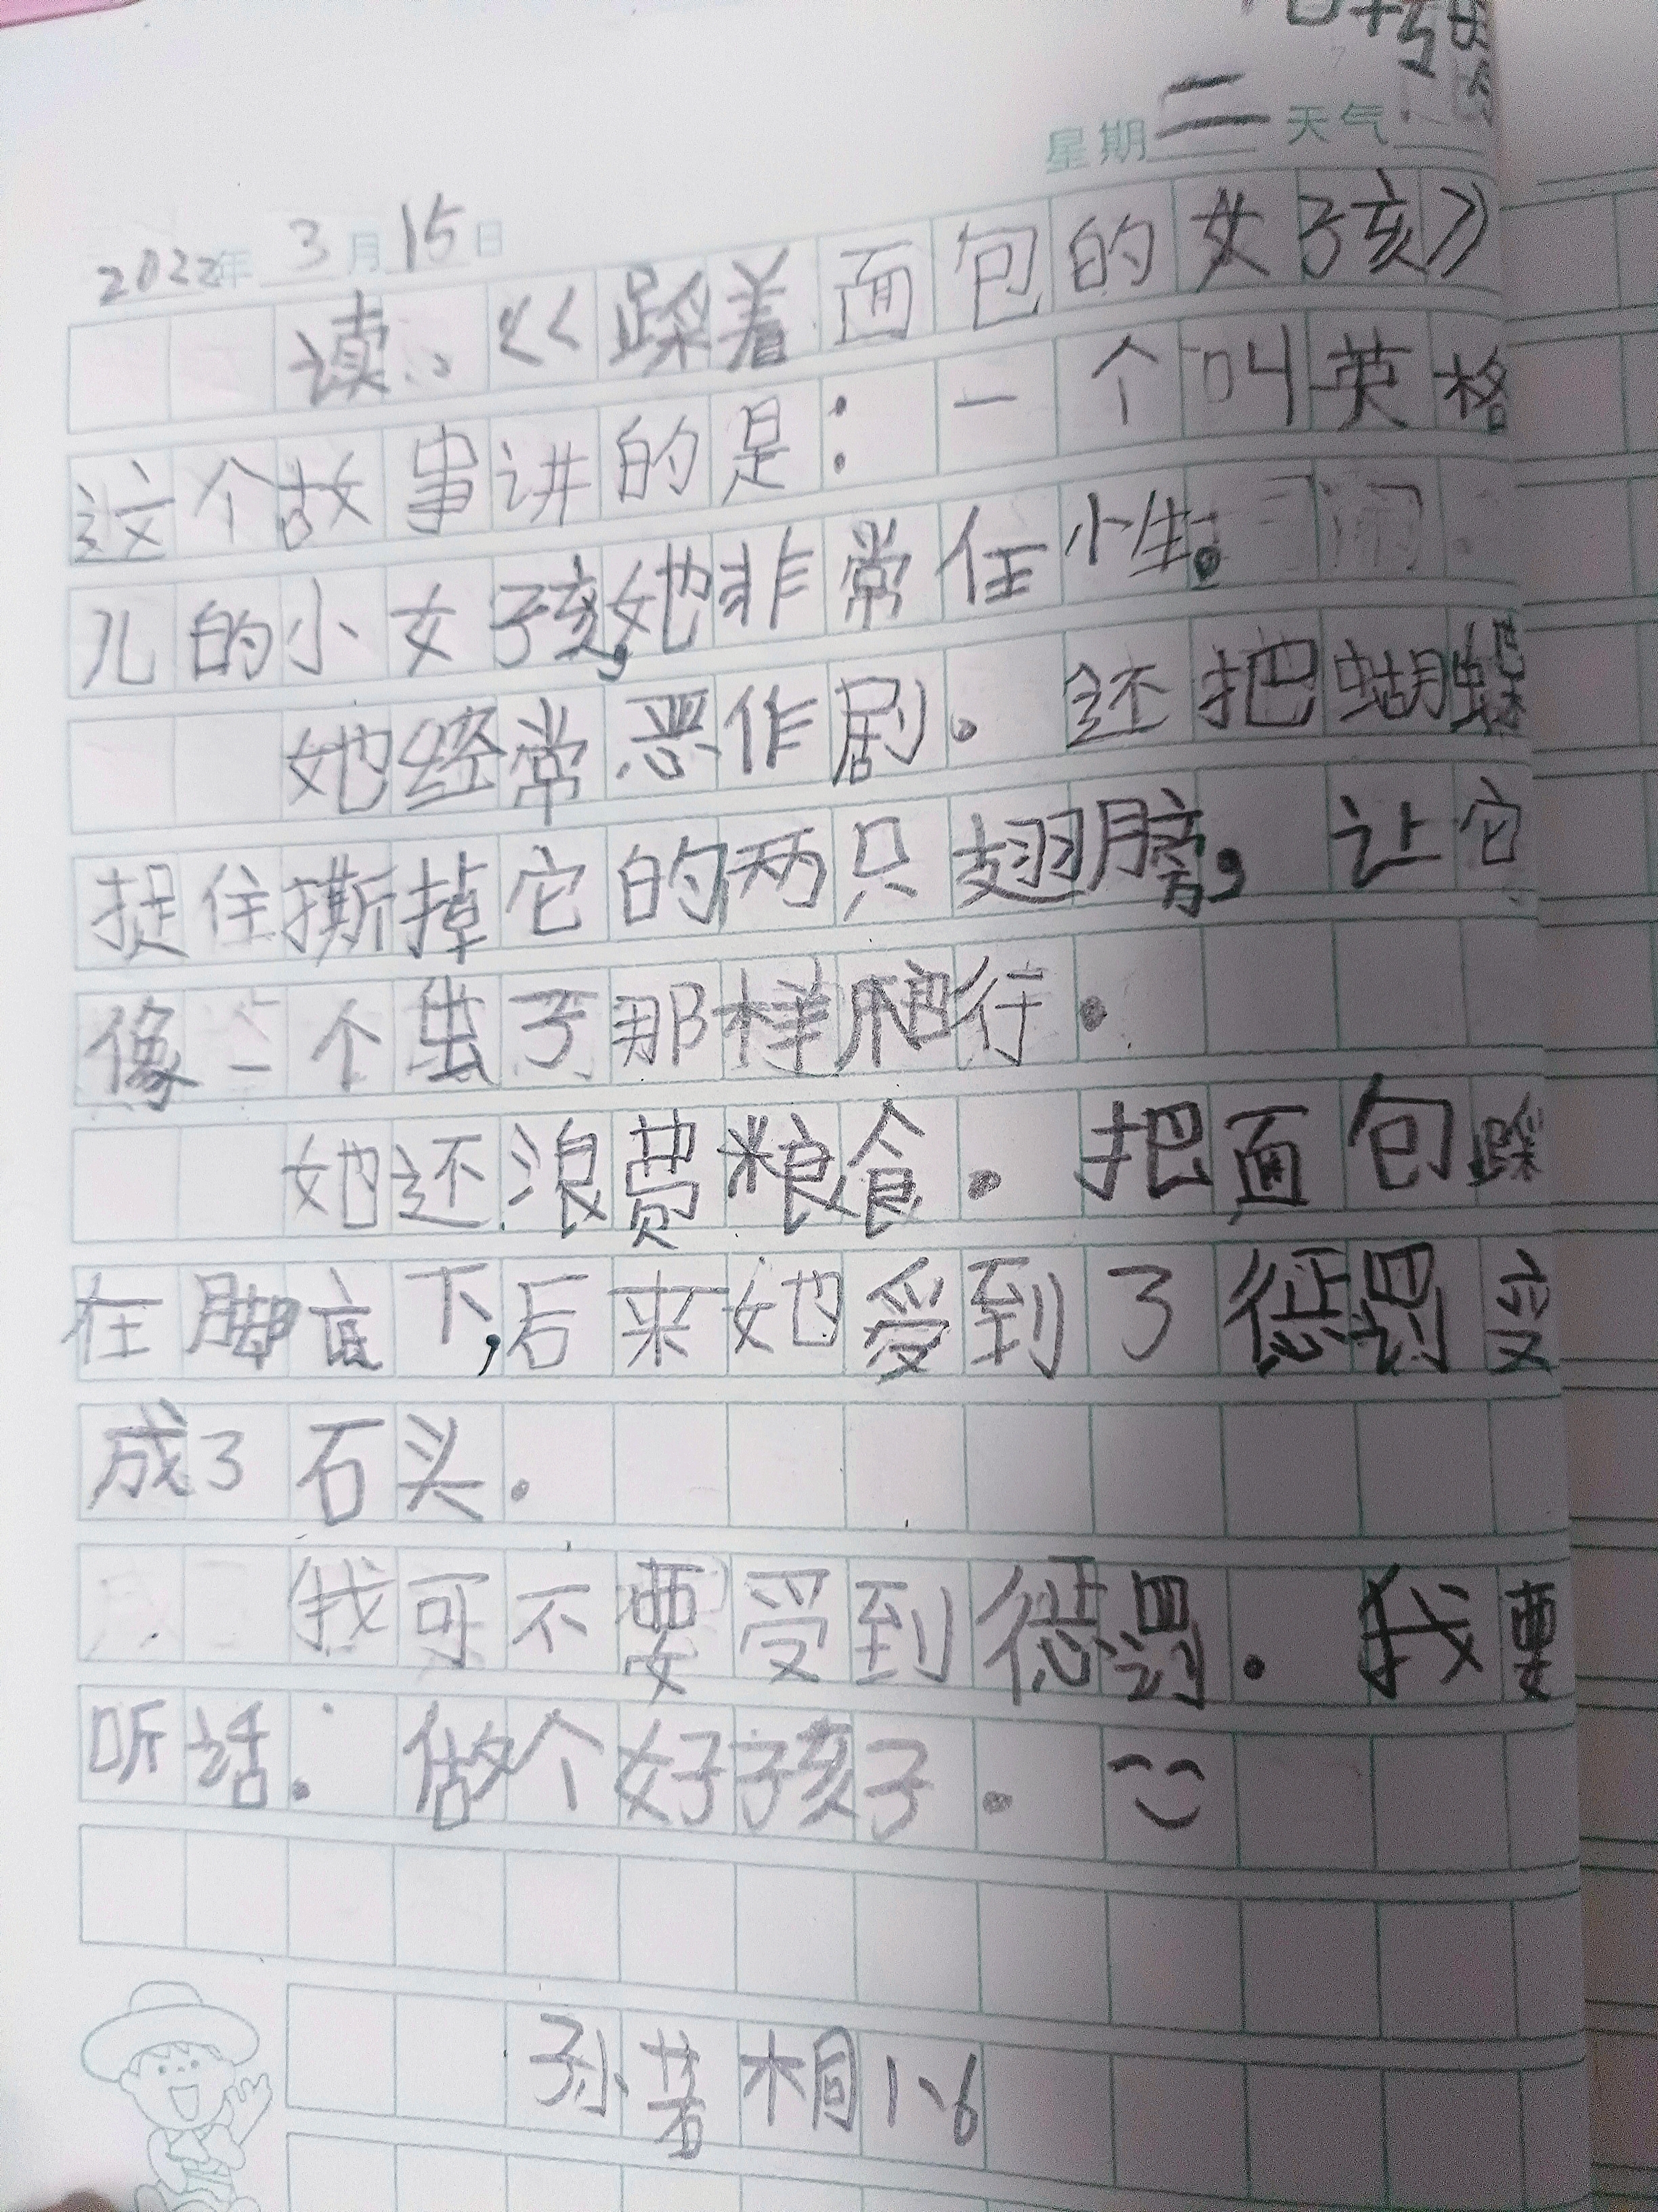 星期二 天气
2022年 3月15日
读:《踩着面包的女孩》
这个故事讲的是:一个叫英格
儿的小女孩,她非常任性。
她经常恶作剧。还把蝴蝶
捉住撕掉它的两只翅膀,让它
像一个虫子那样爬行.
她还浪费粮食.把面包踩
在脚底下,后来她受到了惩罚变
成了石头.
我可不要受到惩罚.我要
听话.做个好孩子.
孙若桐1、6